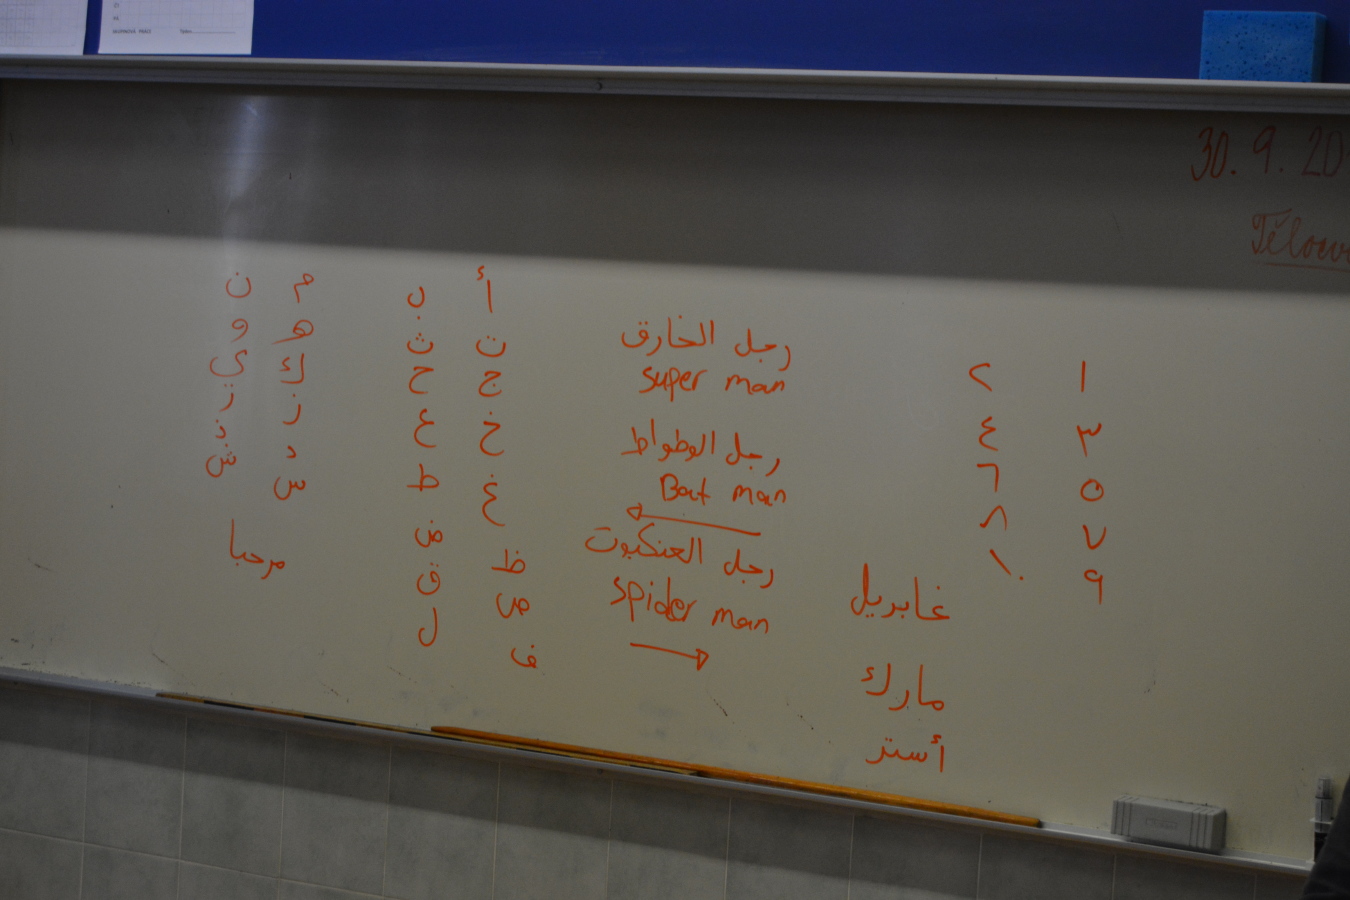 30. 9. 20
Těloc
١ ٢
٣ ٤
٥ ٦
٧ ٨
٩ ١٠
غابريل
مارك
أستر
رجل الخارق
super man
رجل الوطواط
Bat man
رجل العنكبوت
spider man
أ ب
ت ث
ج ح
خ ع
غ ط
ظ ض
ص ق
ف ل
م ن
ه و
ك ي
ر ز
د ذ
س ش
مرحبا